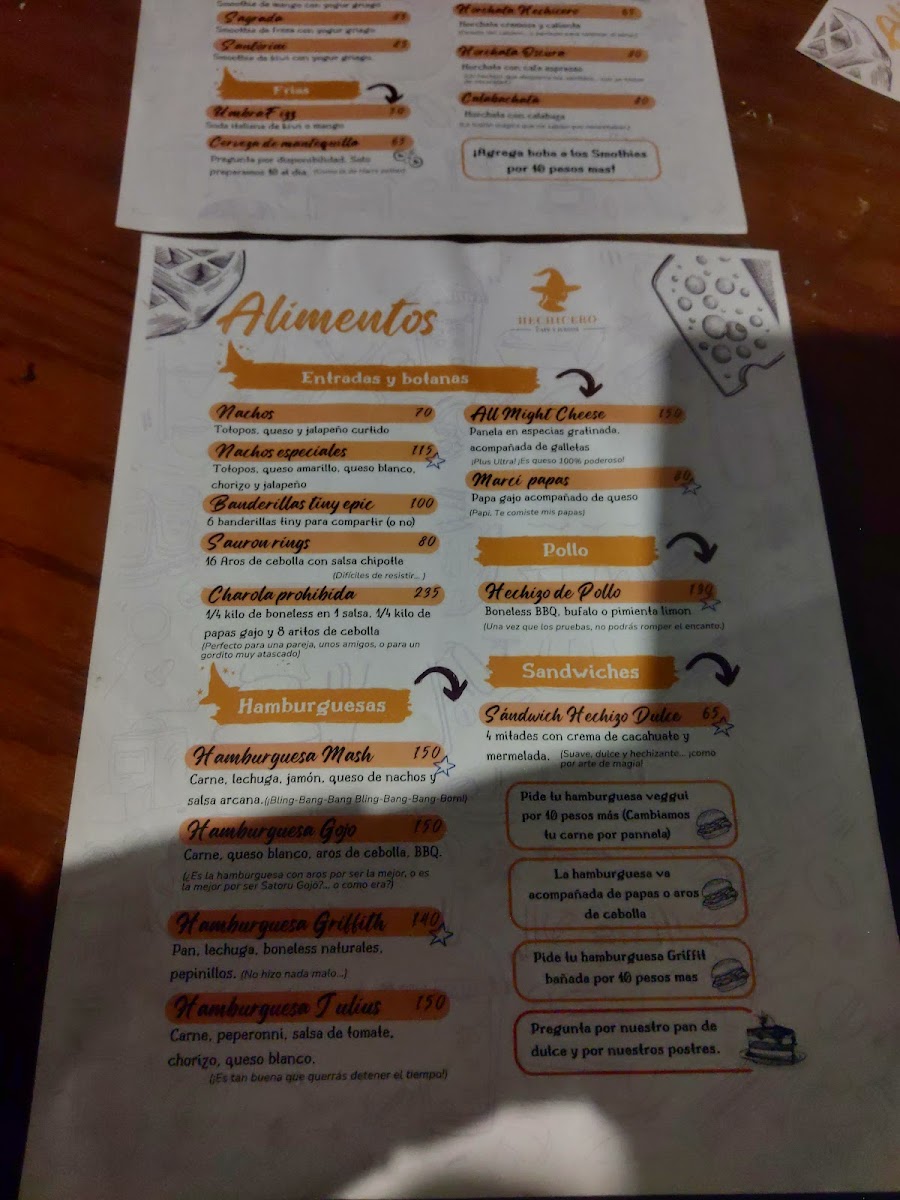 Smoothie de mango con yogur griego
Sagrada
Smoothie de fresa con yogur griego
Santorini
Smoothie de kiwi con yogur griego.
Frías
UmbraFizz 70
Soda italiana de kiwi o mango
Cerveza de mantequilla 65
Pregunta por disponibilidad. Solo
preparamos 10 al día.
Horchata Hechicero 65
Horchata cremosa y caliente
Horchata Oscura 80
Horchata con café espresso
Calabachata 80
Horchata con calabaza
¡Agrega boba a los Smothies
por 10 pesos mas!
Alimentos
HECHICERO
Entradas y botanas
Nachos 70
Totopos, queso y jalapeño curtido
Nachos especiales 115
Totopos, queso amarillo, queso blanco,
chorizo y jalapeño
Banderillas tiny epic 100
6 banderillas tiny para compartir (o no)
Sauron rings 80
16 Aros de cebolla con salsa chipotle
(Difíciles de resistir... )
Charola prohibida 235
1/4 kilo de boneless en 1 salsa, 1/4 kilo de
papas gajo y 8 aritos de cebolla
(Perfecto para una pareja, unos amigos, o para un
gordito muy atascado)
All Might Cheese 150
Panela en especias gratinada,
acompañada de galletas
¡Plus Ultra! ¡Es queso 100% poderoso!
Marci papas 80
Papa gajo acompañado de queso
(Papi, Te comiste mis papas)
Pollo
Hechizo de Pollo 130
Boneless BBQ, bufalo o pimienta limon
(Una vez que los pruebas, no podrás romper el encanto.)
Sandwiches
Sándwich Hechizo Dulce 65
4 mitades con crema de cacahuate y
mermelada. (Suave, dulce y hechizante... ¡como
por arte de magia!
Hamburguesas
Hamburguesa Mash 150
Carne, lechuga, jamón, queso de nachos y
salsa arcana.(¡Bling-Bang-Bang Bling-Bang-Bang Born!)
Hamburguesa Gojo 150
Carne, queso blanco, aros de cebolla, BBQ.
(¿Es la hamburguesa con aros por ser la mejor, o es
la mejor por ser Satoru Gojo?... o como era?)
Hamburguesa Griffith 140
Pan, lechuga, boneless naturales,
pepinillos. (No hizo nada malo...)
Hamburguesa Julius 150
Carne, peperonni, salsa de tomate,
chorizo, queso blanco.
(¡Es tan buena que querrás detener el tiempo!)
Pide tu hamburguesa veggui
por 10 pesos más (Cambiamos
tu carne por pannela)
La hamburguesa va
acompañada de papas o aros
de cebolla
Pide tu hamburguesa Griffit
bañada por 10 pesos mas
Pregunta por nuestro pan de
dulce y por nuestros postres.